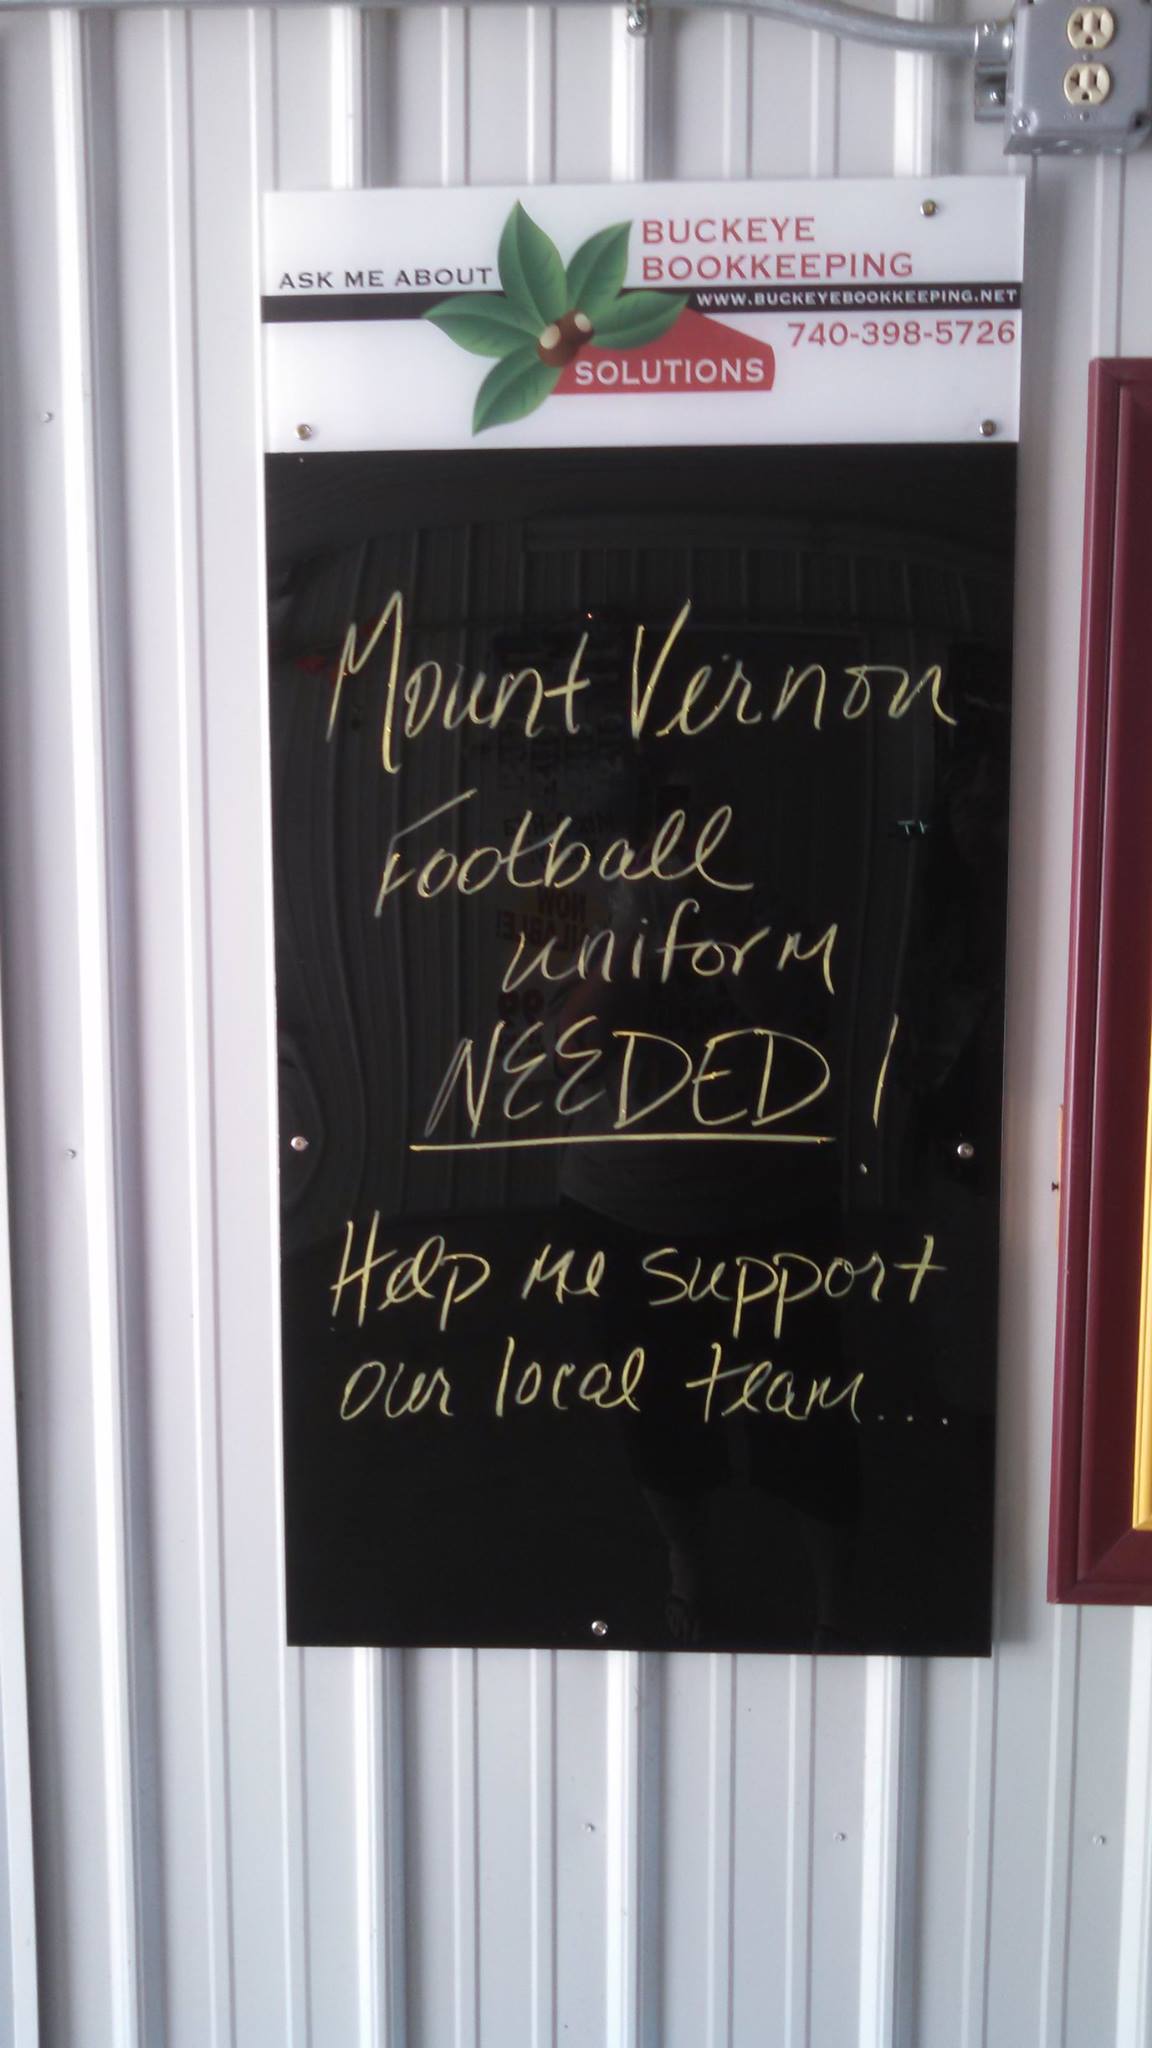 ASK ME ABOUT
BUCKEYE
BOOKKEEPING
WWW.BUCKEYEBOOKKEEPING.NET
740-398-5726
SOLUTIONS
Mount Vernon
Football
uniform
NEEDED!
Help me support
our local team....